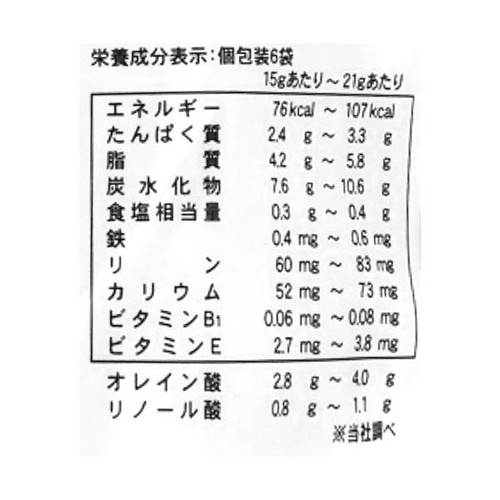 栄養成分表示:個包装6袋
15gあたり～21gあたり
エネルギー 76kcal ～ 107kcal
たんぱく質 2.4 g ～ 3.3 g
脂質 4.2 g ～ 5.8 g
炭水化物 7.6 g ～ 10.6 g
食塩相当量 0.3 g ～ 0.4 g
鉄 0.4 mg ～ 0.6 mg
リン 60 mg ～ 83 mg
カリウム 52 mg ～ 73 mg
ビタミンB1 0.06 mg ～ 0.08 mg
ビタミンE 2.7 mg ～ 3.8 mg
オレイン酸 2.8 g ～ 4.0 g
リノール酸 0.8 g ～ 1.1 g
※当社調べ